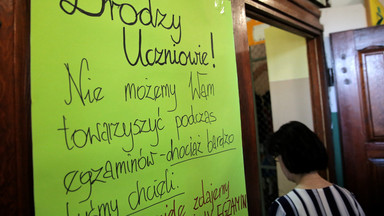 Drodzy
Uczniowie!
Nie możemy Wam
towarzyszyć podczas
egzaminów - chociaż bardzo
byśmy chcieli.
zdajemy
EGZAMIN